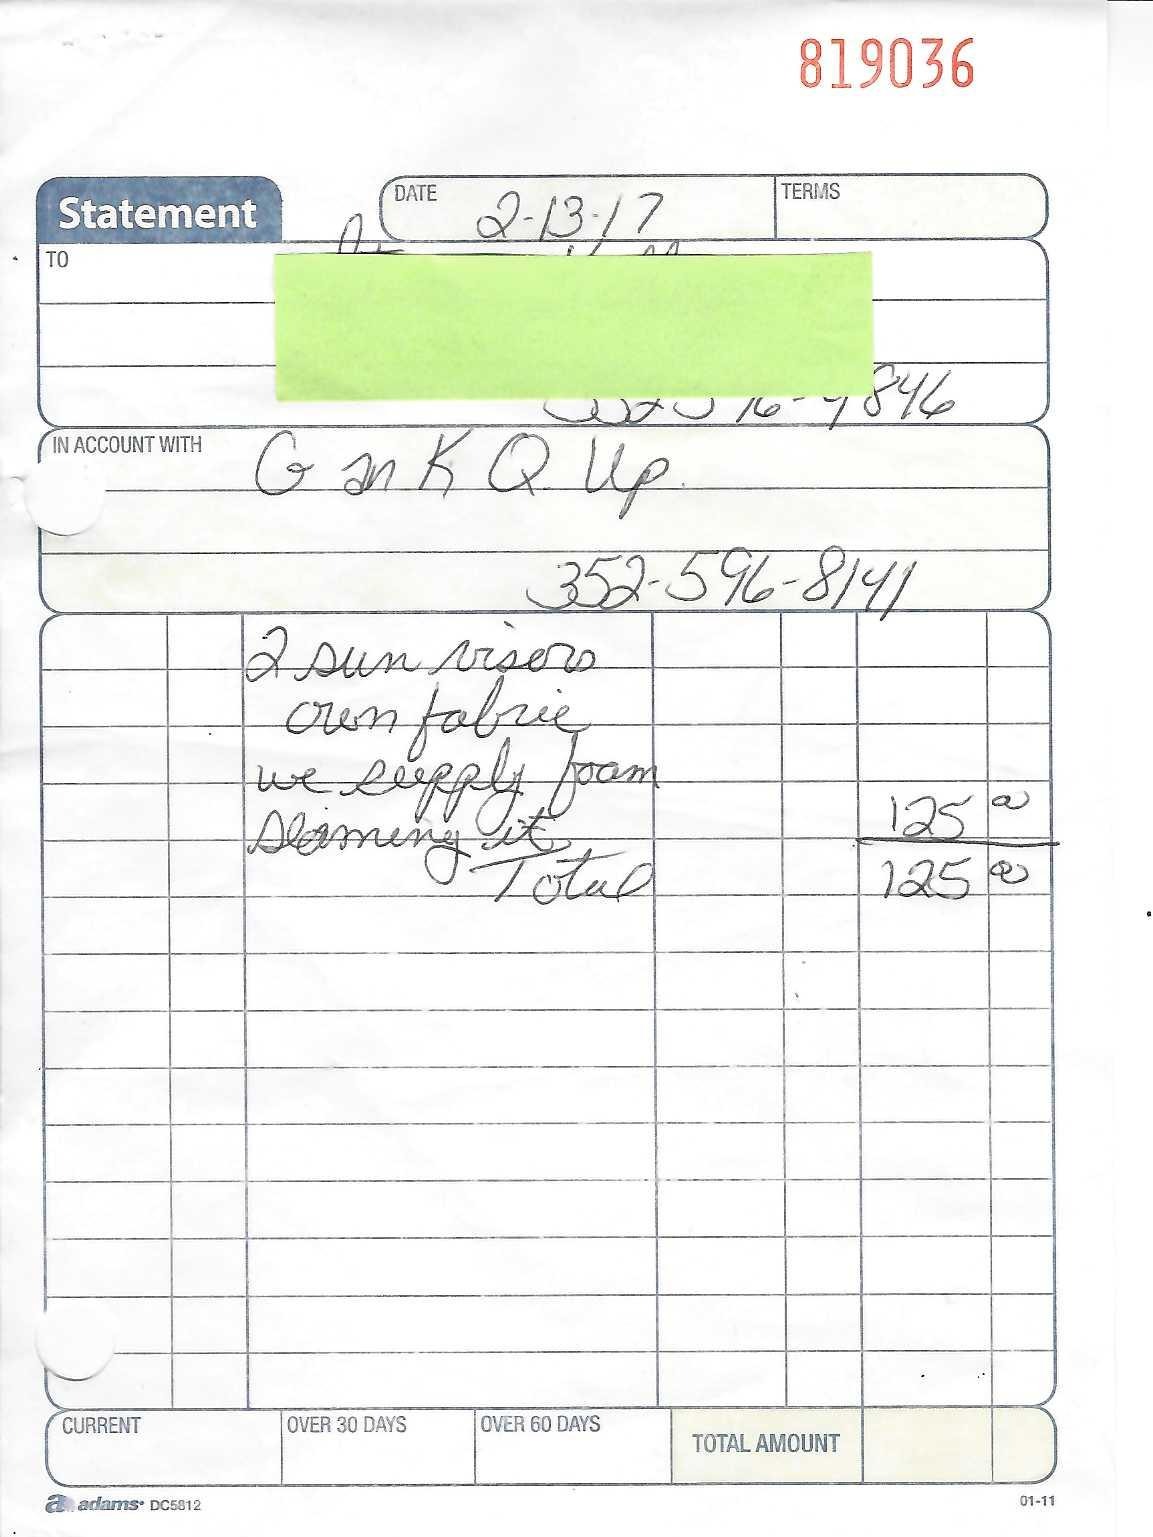 819036
Statement
DATE 2-13-17 TERMS
TO
846
IN ACCOUNT WITH G K Q Up.
352-596-8141
2 sun visors
own fabric
we supply foam
seaming it 125 00
Total 125 00
CURRENT OVER 30 DAYS OVER 60 DAYS TOTAL AMOUNT
adams DC5812 01-11